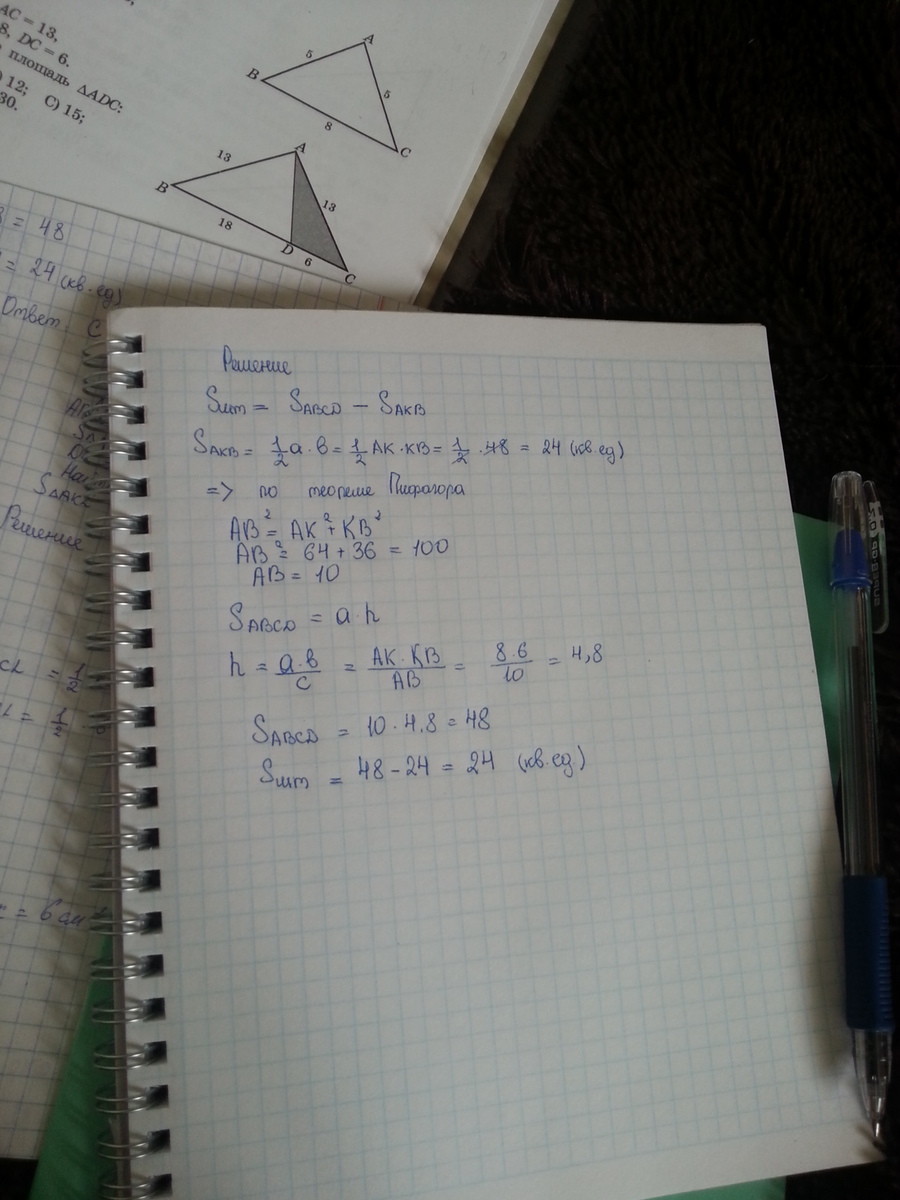 AC = 13,
8, DC = 6.
площадь △ADC:
12; C) 15;
30.
A
5
B
5
8
C
A
13
B
13
18
D
6
C
= 48
= 24 (кв.ед)
Ответ. C
Решение
= 1/2
= 1/2
= 6 см
Решение
Sшт = SABCD − SAKB
SAKB = 1/2 a · b = 1/2 AK · KB = 1/2 · 48 = 24 (кв.ед)
=> по теореме Пифагора
AB² = AK² + KB²
AB² = 64 + 36 = 100
AB = 10
SABCD = a · h
h = a·b/c = AK·KB/AB = 8·6/10 = 4,8
SABCD = 10 · 4,8 = 48
Sшт = 48 − 24 = 24 (кв.ед.)